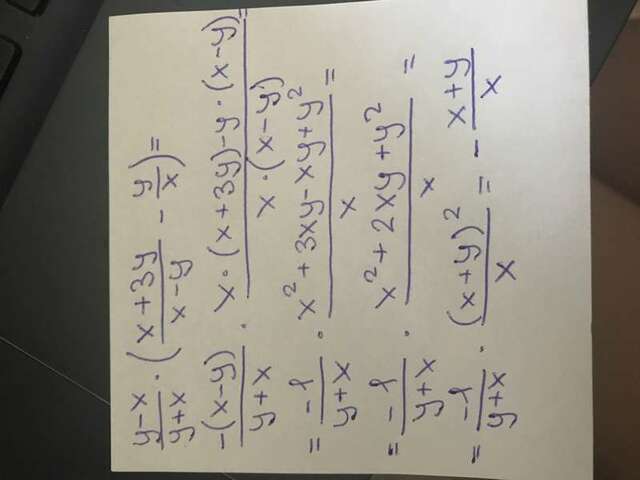 (y-x)/(y+x) · ((x+3y)/(x-y) - y/x) =
(-(x-y))/(y+x) · (x·(x+3y)-y·(x-y))/(x·(x-y)) =
= (-1)/(y+x) · (x²+3xy-xy+y²)/x =
= (-1)/(y+x) · (x²+2xy+y²)/x =
= (-1)/(y+x) · (x+y)²/x = - (x+y)/x